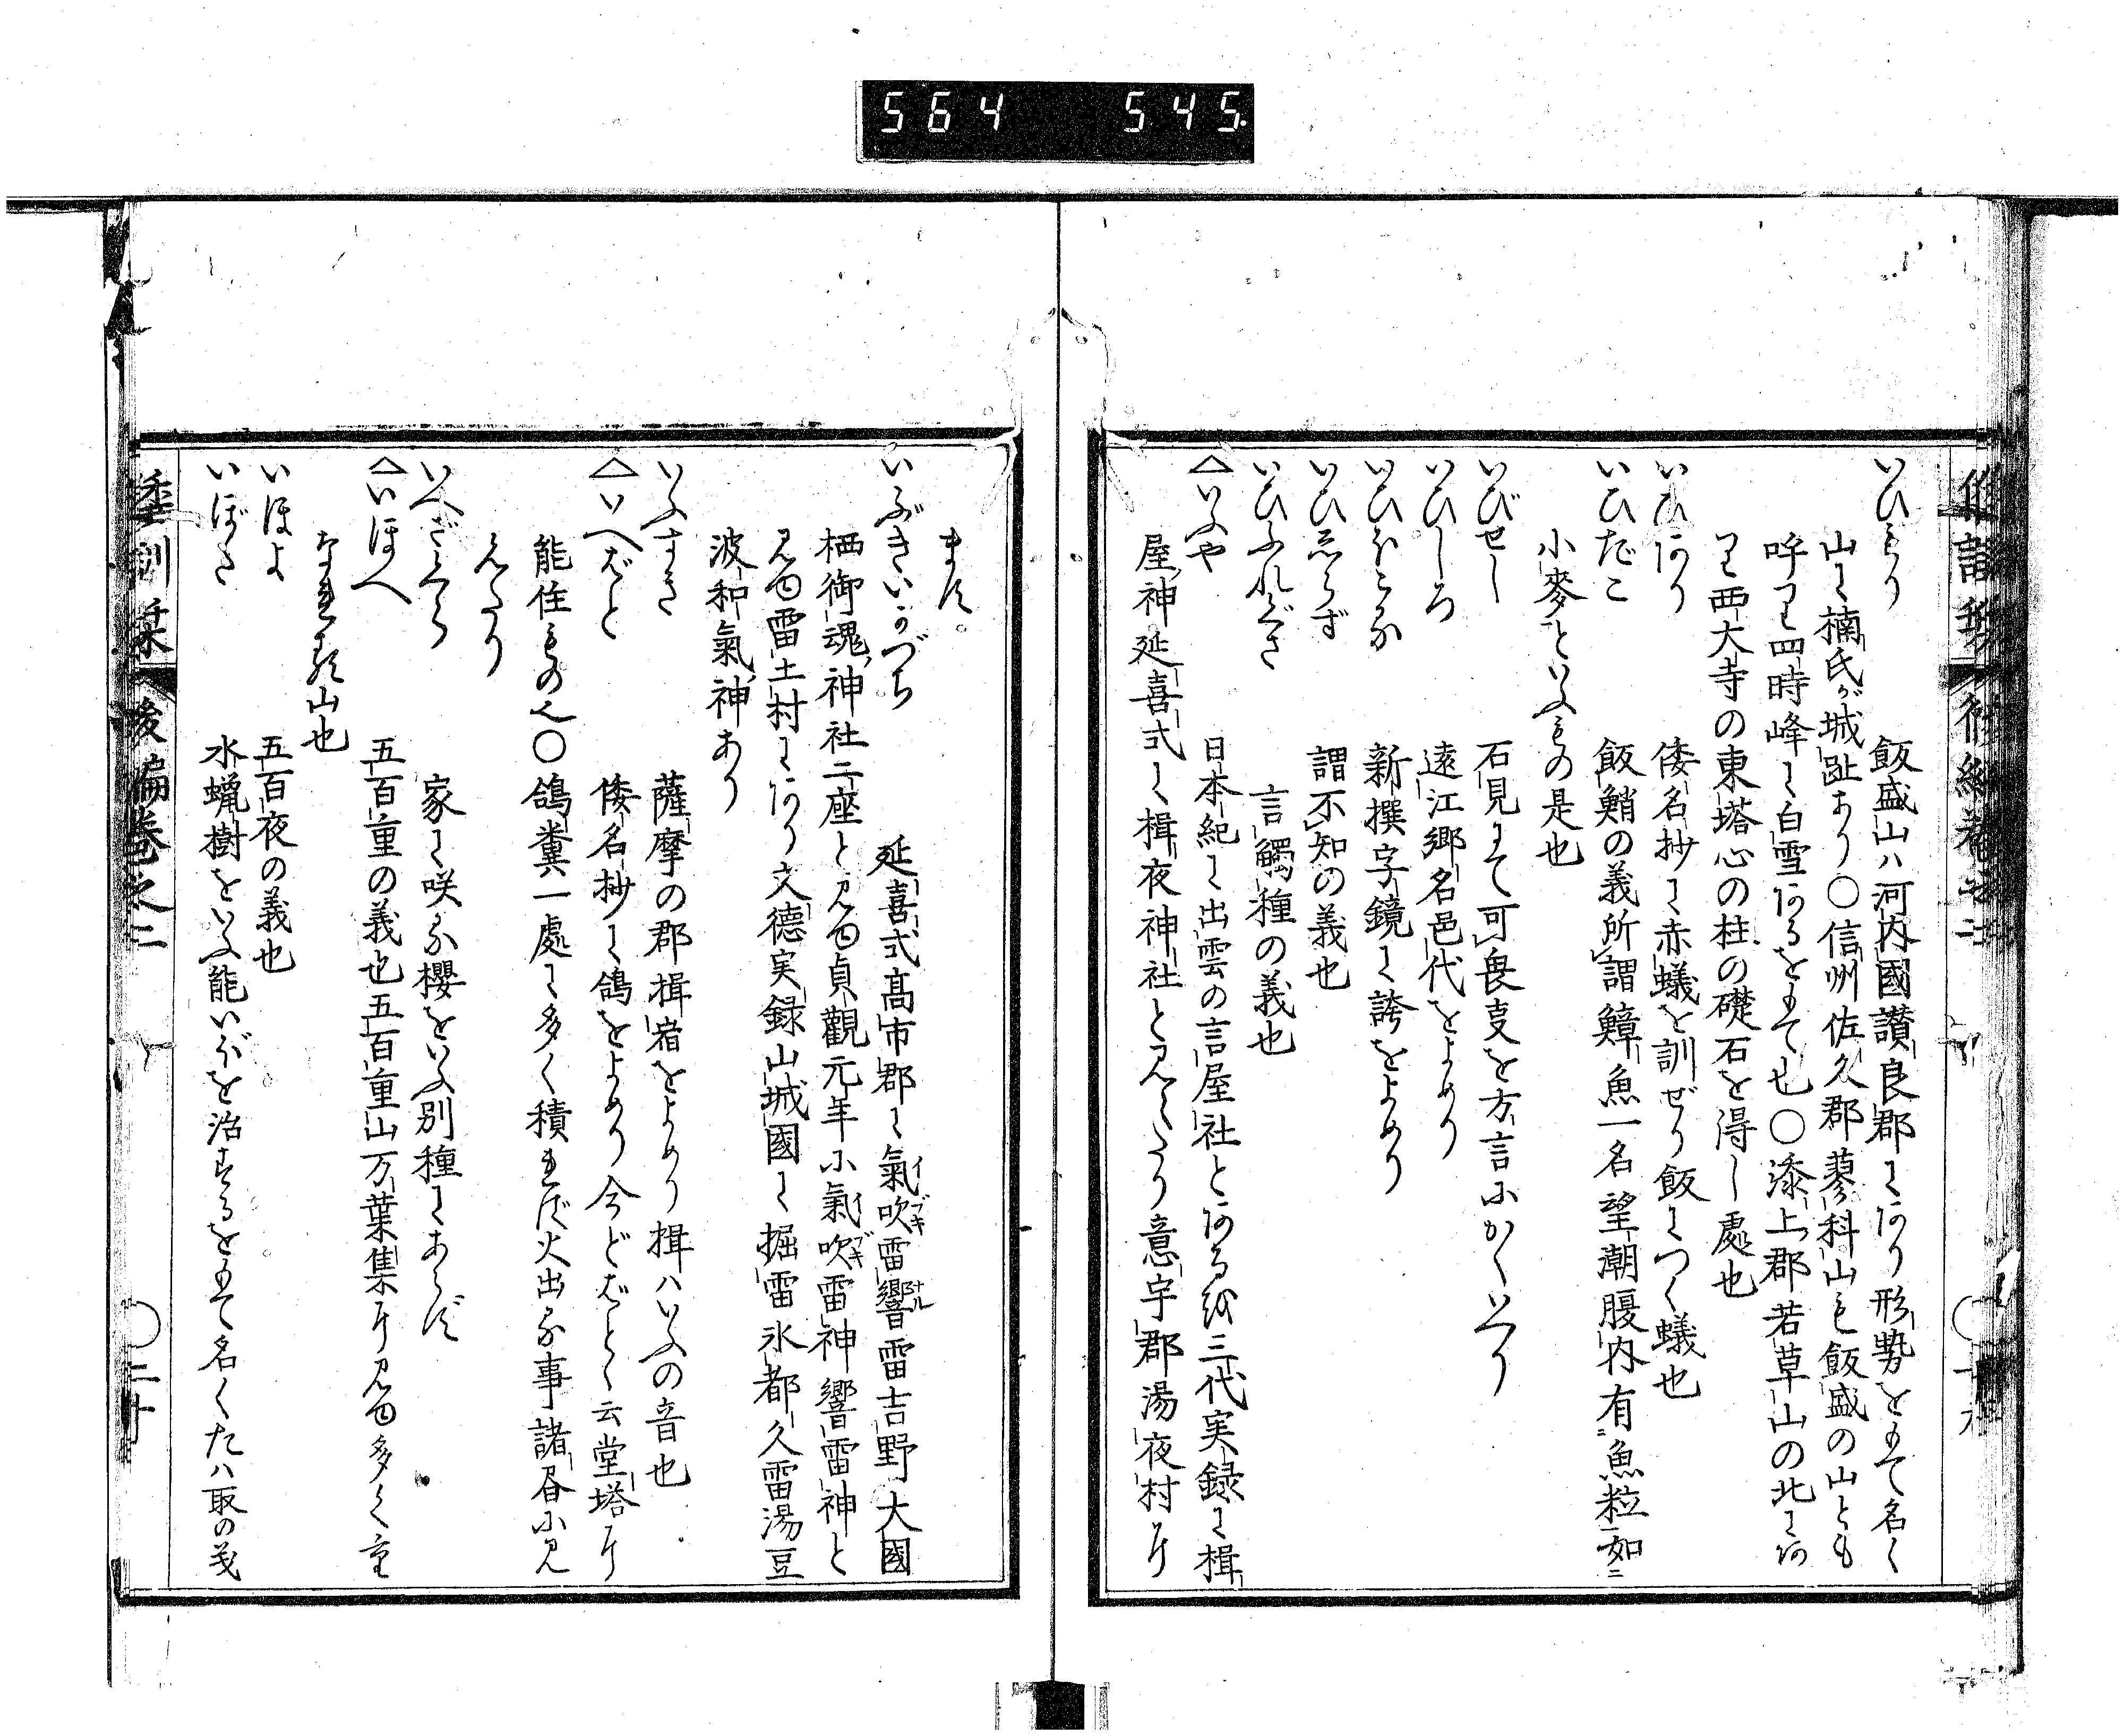 564 545
いひもり 飯盛山ハ河内國讃良郡にあり形勢をもて名く
山に楠氏が城趾あり〇信州佐久郡蓼科山も飯盛の山とも
呼り四時峰に白雪あるをもて也〇添上郡若草山の北にあ
り西大寺の東塔心の柱の礎石を得し處也
いひあり 倭名抄に赤蟻を訓ぜり飯につく蟻也
いひだこ 飯鮹の義所謂鱆魚一名望潮腹内有魚粒如
小麥といふもの是也
いびせし 石見にて可畏支を方言にかくいへり
いひしろ 遠江郷名邑代をよめり
いひほこる 新撰字鏡に誇をよめり
いひしらず 謂不知の義也
いひふれぐさ 言觸種の義也
△いふや 日本紀に出雲の言屋社とあるは三代実録に揖
屋神延喜式に揖夜神社と見えたり意宇郡湯夜村に
ます
いぶきいかづち 延喜式高市郡に氣吹雷響雷吉野大國
栖御魂神社二座と見ゆ貞觀元年に氣吹雷神響雷神と
見ゆ雷土村にあり文德実録山城國に掘雷氷都久雷湯豆
波和氣神あり
いふすき 薩摩の郡揖宿をよめり揖ハいふの音也
△いへばと 倭名抄に鴿をよめり今どばと云堂塔に
能住もの也〇鴿糞一處に多く積れバ火出る事諸書に見
えたり
いへざくら 家に咲る櫻をいふ別種にあらず
△いほへ 五百重の義也五百重山万葉集に見ゆ多く重
なれる山也
いほよ 五百夜の義也
いぼた 水蝋樹をいふ能いぼを治するをもて名くたハ取の義
倭訓栞 後編巻之二 〇二十